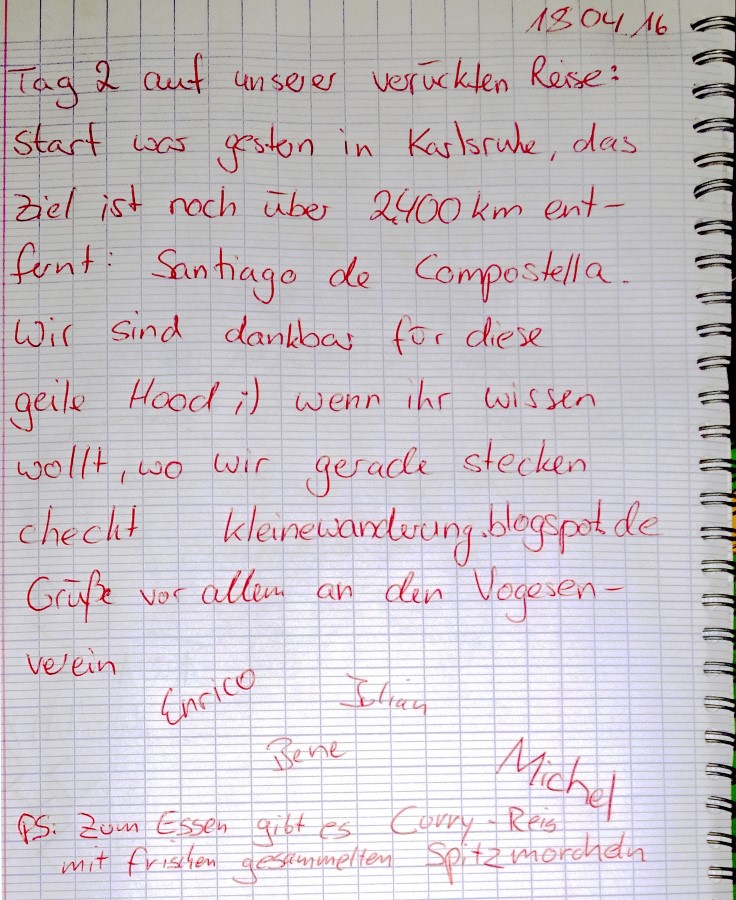 18 04 16
Tag 2 auf unserer verückten Reise:
Start war gestern in Karlsruhe, das
Ziel ist noch über 2400 km ent-
fernt: Santiago de Compostella.
Wir sind dankbar für diese
geile Hood ;) wenn ihr wissen
wollt, wo wir gerade stecken
checkt kleinewanderung.blogspot.de
Grüße vor allem an den Vogesen-
verein
Enrico Julian
Bene Michel
PS: Zum Essen gibt es Curry-Reis
mit frischen gesammelten Spitzmorcheln